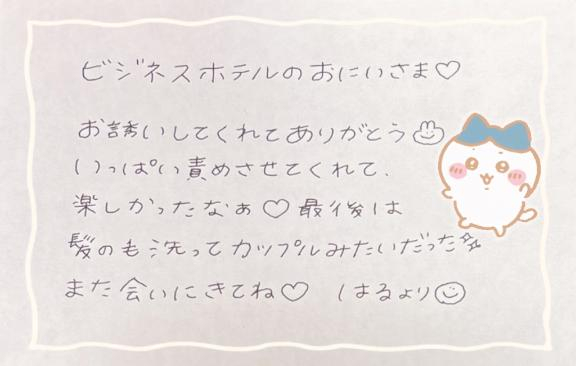 ビジネスホテルのおにいさま♡
お誘いしてくれてありがとう
いっぱい責めさせてくれて、
楽しかったなぁ♡最後は
髪のも洗ってカップルみたいだった
また会いにきてね♡ はるより